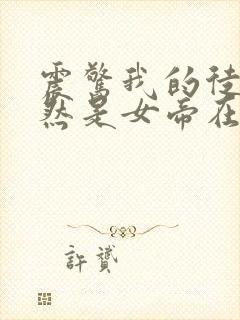 震驚我的徒
然是女帝在
許贊